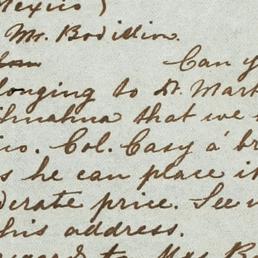 Mexico)
Mr. Bodillin.
Can y
longing to Dr. Mart
that we
co. Col. Casy á br
s he can place it
derate price. See
his address.
to Mrs B